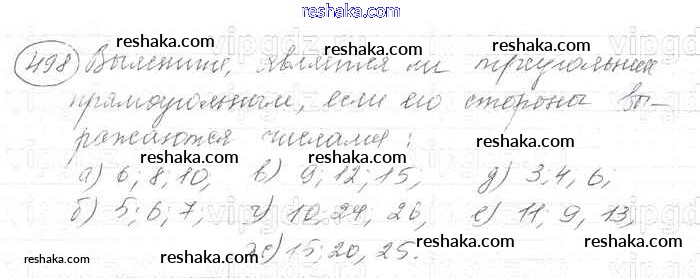 reshaka.com
reshaka.com reshaka.com
498 Выясните, является ли треугольник
прямоугольным, если его стороны вы-
reshaka.com reshaka.com
ражаются числами:
reshaka.com
reshaka.com reshaka.com
а) 6; 8; 10; в) 9; 12; 15; д) 3; 4; 6;
reshaka.com reshaka.com reshaka.com
б) 5; 6; 7; г) 10, 24, 26, е) 11; 9, 13;
reshaka.com reshaka.com
ж) 15; 20, 25.
reshaka.com reshaka.com reshaka.com